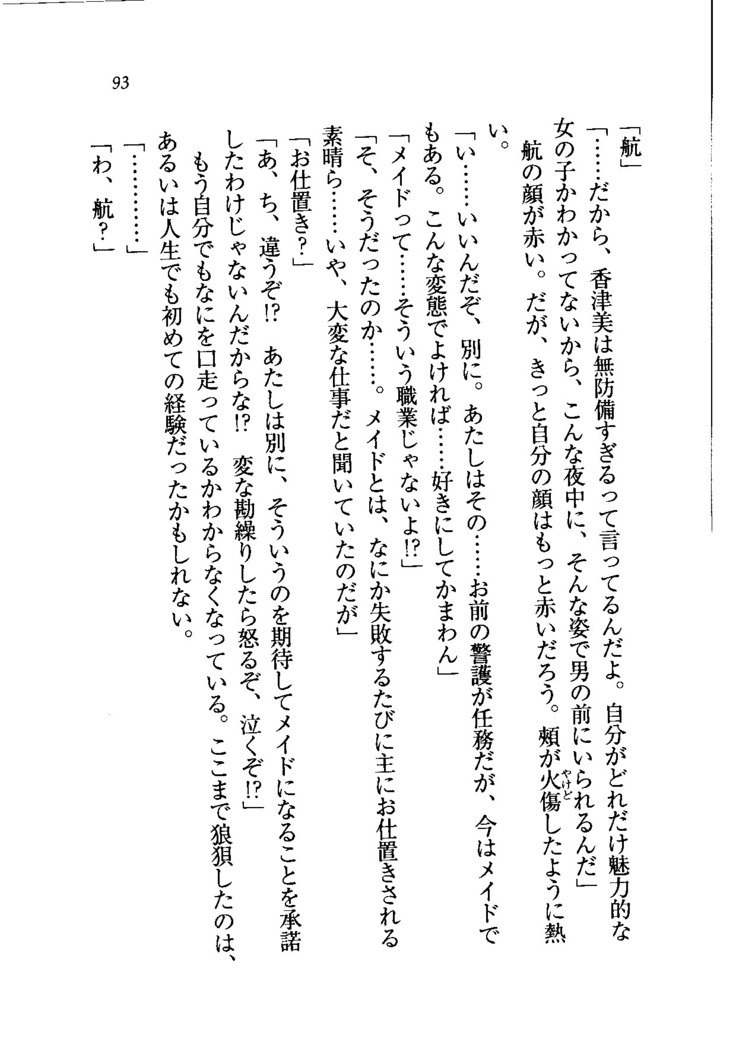 93
「航」
「……だから、香津美は無防備すぎるって言ってるんだよ。自分がどれだけ魅力的な
女の子かわかってないから、こんな夜中に、そんな姿で男の前にいられるんだ」
　航の顔が赤い。だが、きっと自分の顔はもっと赤いだろう。頰が火傷したように熱
やけど
い。
「い……いいんだぞ、別に。あたしはその……お前の警護が任務だが、今はメイドで
もある。こんな変態でよければ……好きにしてかまわん」
「メイドって……そういう職業じゃないよ!?」
「そ、そうだったのか……。メイドとは、なにか失敗するたびに主にお仕置きされる
素晴ら……いや、大変な仕事だと聞いていたのだが」
「お仕置き？」
「あ、ち、違うぞ!?　あたしは別に、そういうのを期待してメイドになることを承諾
したわけじゃないんだからな!?　変な勘繰りしたら怒るぞ、泣くぞ!?」
　もう自分でもなにを口走っているかわからなくなっている。ここまで狼狽したのは、
あるいは人生でも初めての経験だったかもしれない。
「…………」
「わ、航？」